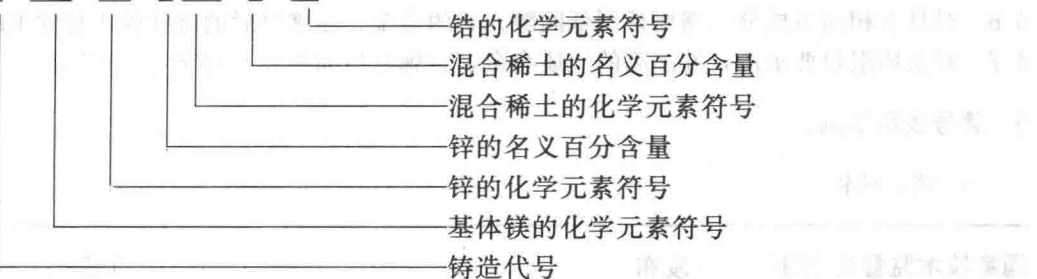 锆的化学元素符号
混合稀土的名义百分含量
混合稀土的化学元素符号
锌的名义百分含量
锌的化学元素符号
基体镁的化学元素符号
铸造代号